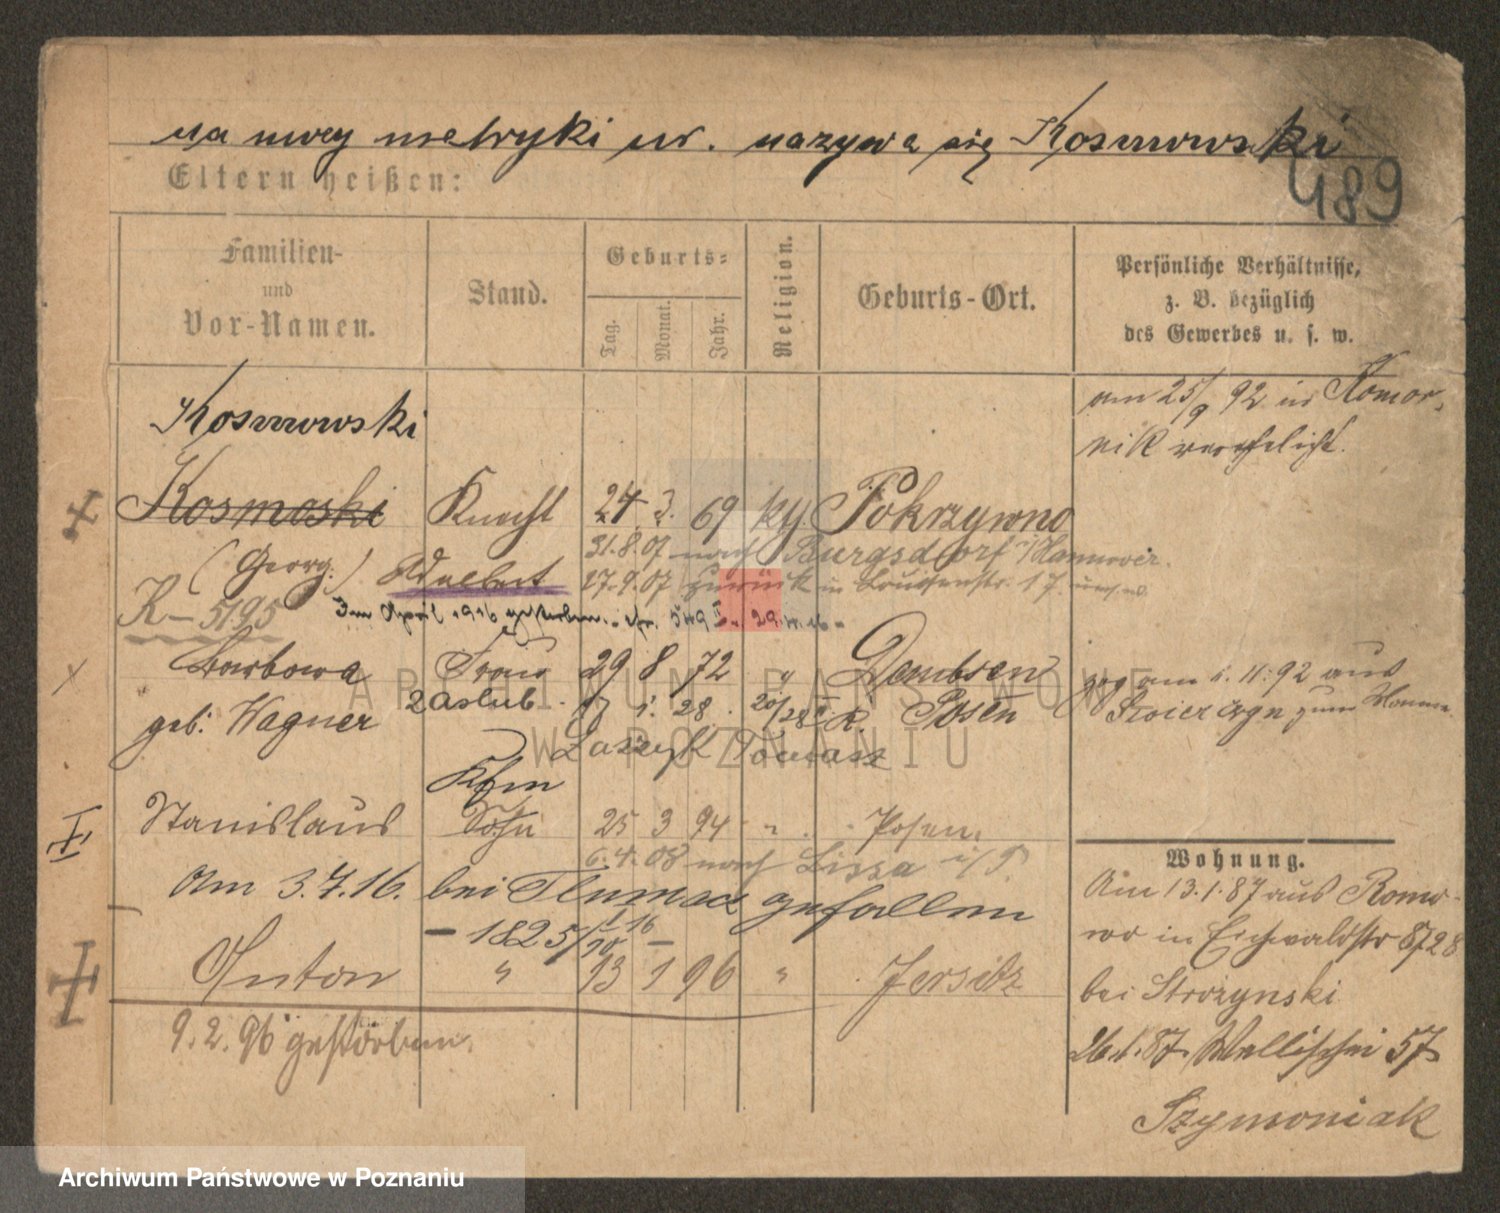 na mocy metryki ur. nazywa się Kosmowski
489
Eltern heißen:
Familien-
und
Vor-Namen.
Stand.
Geburts-
Tag.
Monat.
Jahr.
Religion.
Geburts-Ort.
Persönliche Verhältnisse,
z. B. bezüglich
des Gewerbes u. s. w.
am 25/9 92 in Komor-
nik verehelicht.
Kosmowski
Kosmoski Knecht 24. 3. 69 kth. Pokrzywno
31.8.07 nach Burgsdorf i/Hannover.
(Georg.) Adalbert 27.9.07 zurück in Louisenstr. 17
R-5195
Im April 1916 gestorben. 549 II. 29.4.16
Barbara Frau 29 8 72 " Dembsen
zog am 1.11.92 aus
geb: Wagner 2 aslub 17 1. 28. Posen
Łaszyk Tomasz
Kfm
Stanislaus Sohn 25 3 94 " Posen.
6.4.08 nach Lissa i/P.
Am 3.7.16. bei Tlumacz gefallen
- 1825/16 -
Anton " 13 1 96 " Jersitz
9.2.96 gestorben.
Wohnung.
Am 13.1.87 aus
in Eichwaldstr 8728
bei Strozynski
26.1.87. Wallischei 57
Szymoniak
ARCHIWUM PAŃSTWOWE
W POZNANIU
Archiwum Państwowe w Poznaniu